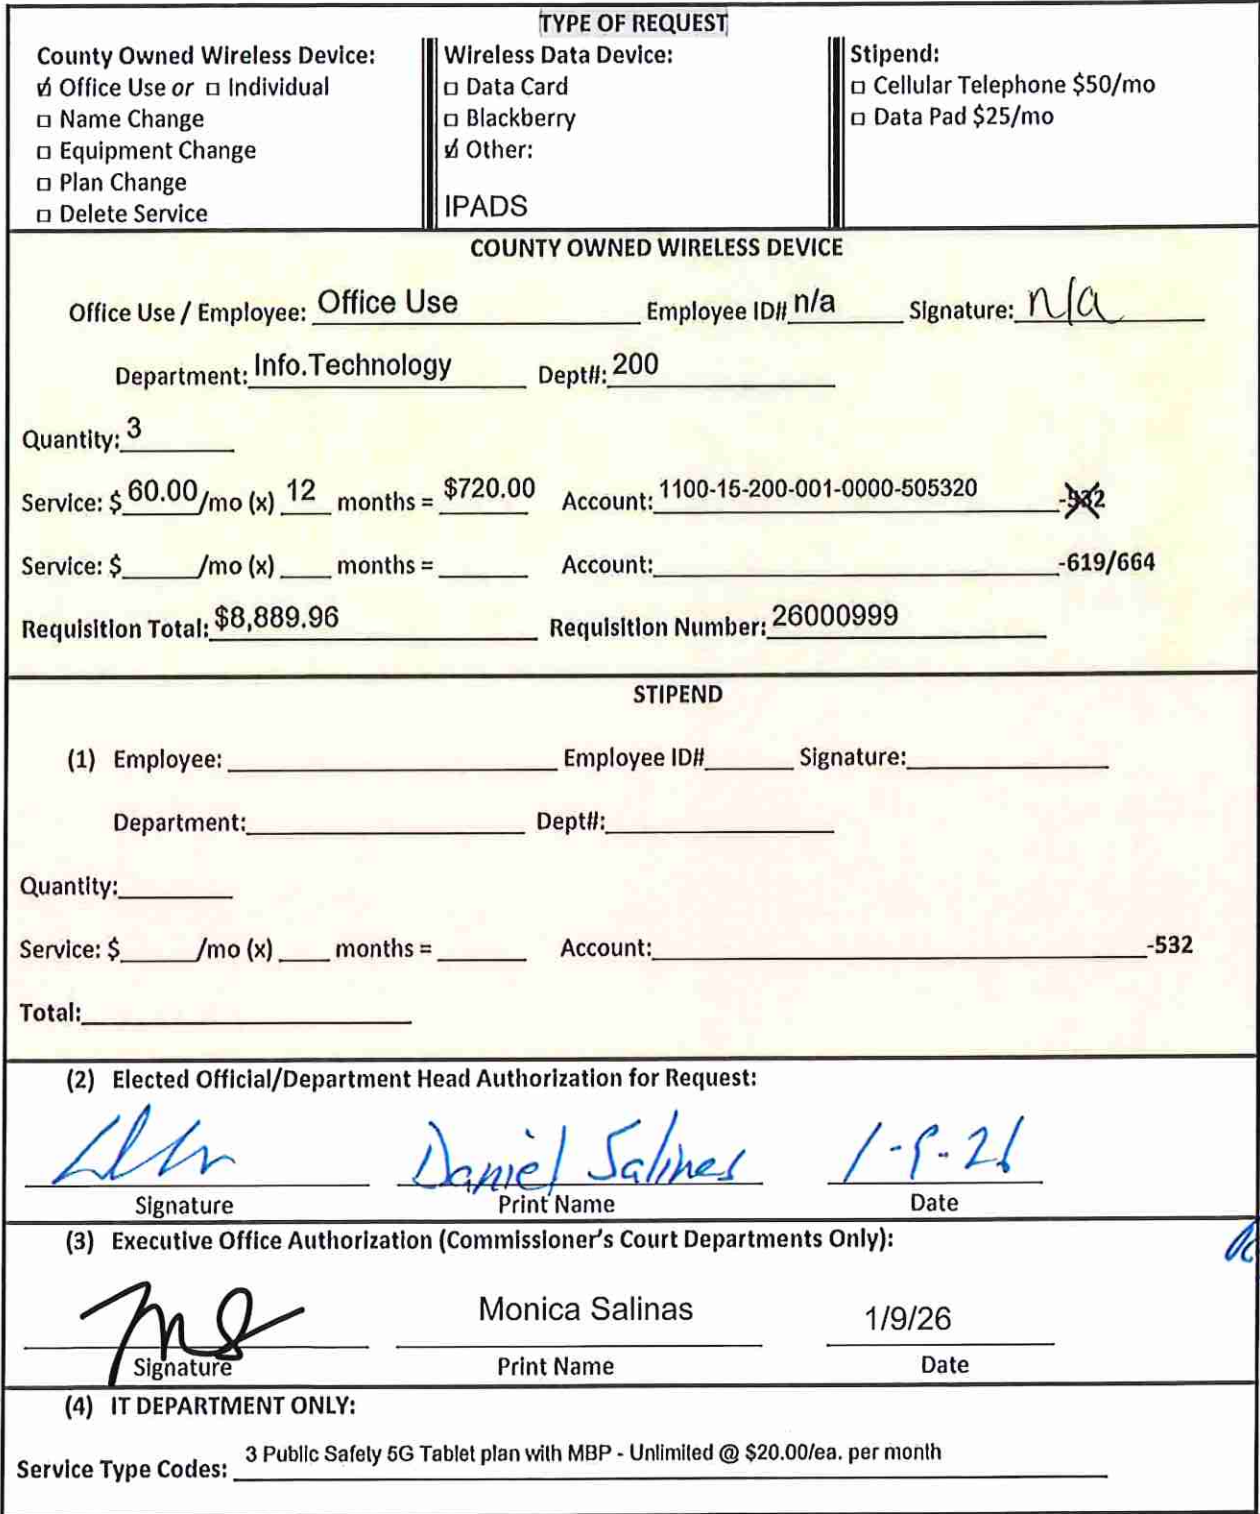 TYPE OF REQUEST
County Owned Wireless Device:
☑ Office Use or ☐ Individual
☐ Name Change
☐ Equipment Change
☐ Plan Change
☐ Delete Service
Wireless Data Device:
☐ Data Card
☐ Blackberry
☑ Other:
IPADS
Stipend:
☐ Cellular Telephone $50/mo
☐ Data Pad $25/mo
COUNTY OWNED WIRELESS DEVICE
Office Use / Employee: Office Use Employee ID# n/a Signature: n/a
Department: Info.Technology Dept#: 200
Quantity: 3
Service: $ 60.00 /mo (x) 12 months = $720.00 Account: 1100-15-200-001-0000-505320 -532
Service: $ /mo (x) months = Account: -619/664
Requisition Total: $8,889.96 Requisition Number: 26000999
STIPEND
(1) Employee: Employee ID# Signature:
Department: Dept#:
Quantity:
Service: $ /mo (x) months = Account: -532
Total:
(2) Elected Official/Department Head Authorization for Request:
Daniel Salinas
Signature Print Name Date
(3) Executive Office Authorization (Commissioner's Court Departments Only):
MS Monica Salinas 1/9/26
Signature Print Name Date
(4) IT DEPARTMENT ONLY:
Service Type Codes: 3 Public Safety 5G Tablet plan with MBP - Unlimited @ $20.00/ea. per month